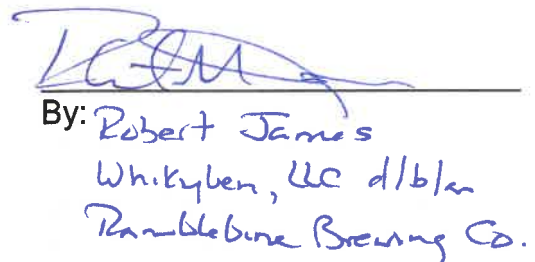 By: Robert James
Whikyben, LLC d/b/a
Ramblebine Brewing Co.